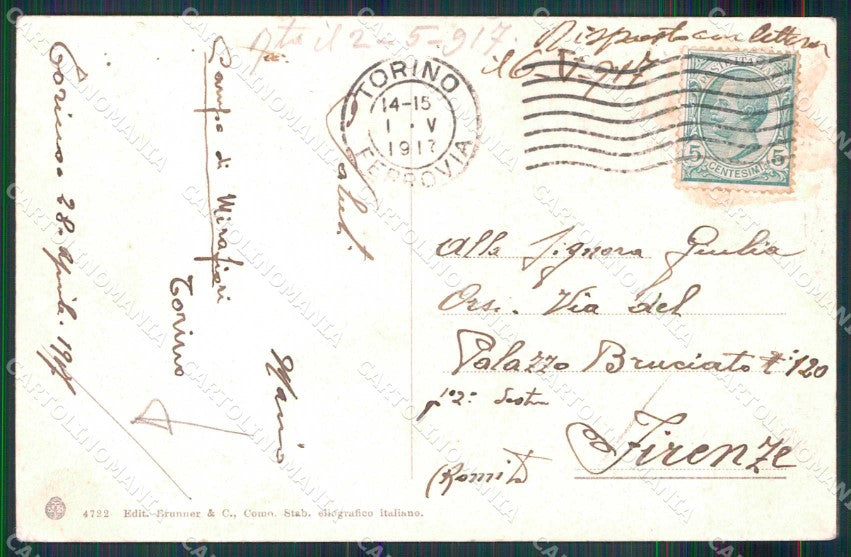 Torino - 28 - Aprile. 1917
Campo di Mirafiori
Torino
Saluti
Mario
il 2-5-917.
Risposto con lettera
il 6-V-917
TORINO
14-15
1 · V
1917
FERROVIA
POSTE ITALIANE
5 CENTESIMI 5
Alla Signora Giulia
Orsi. Via del
Palazzo Bruciato N: 120
p° 2° Destra
Firenze
(Romito)
4732 Edit. Brunner & C., Como. Stab. eliografico italiano.
CARTOLINOMANIA